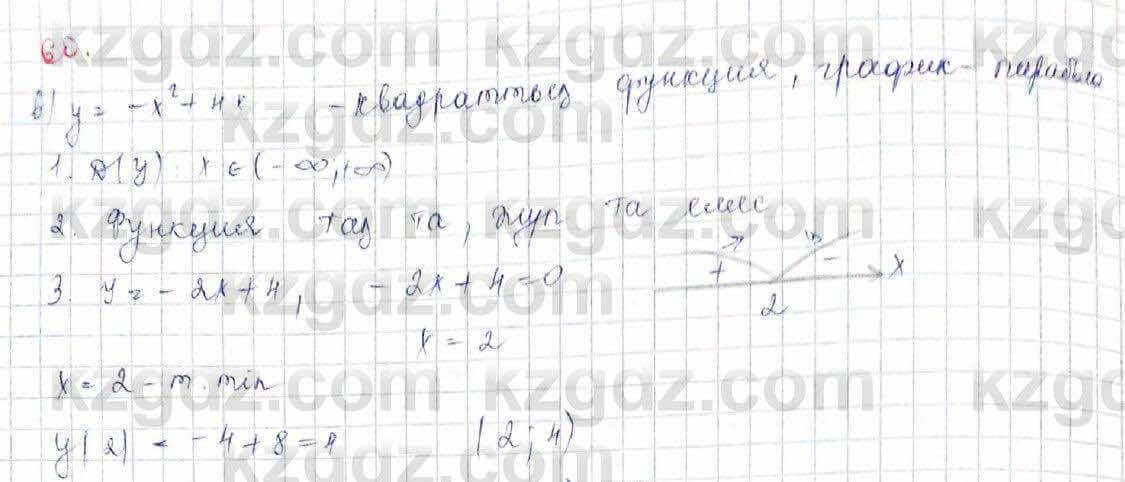 60.
в) y = -x² + 4x - квадраттық функция, график - парабола
1. D(y) x ∈ (-∞, +∞)
2. Функция тақ та, жұп та емес
3. y = -2x + 4, -2x + 4 = 0
x = 2
+ - x
2
x = 2 - т. min
y(2) = -4 + 8 = 4 (2; 4)
kzgdz.com